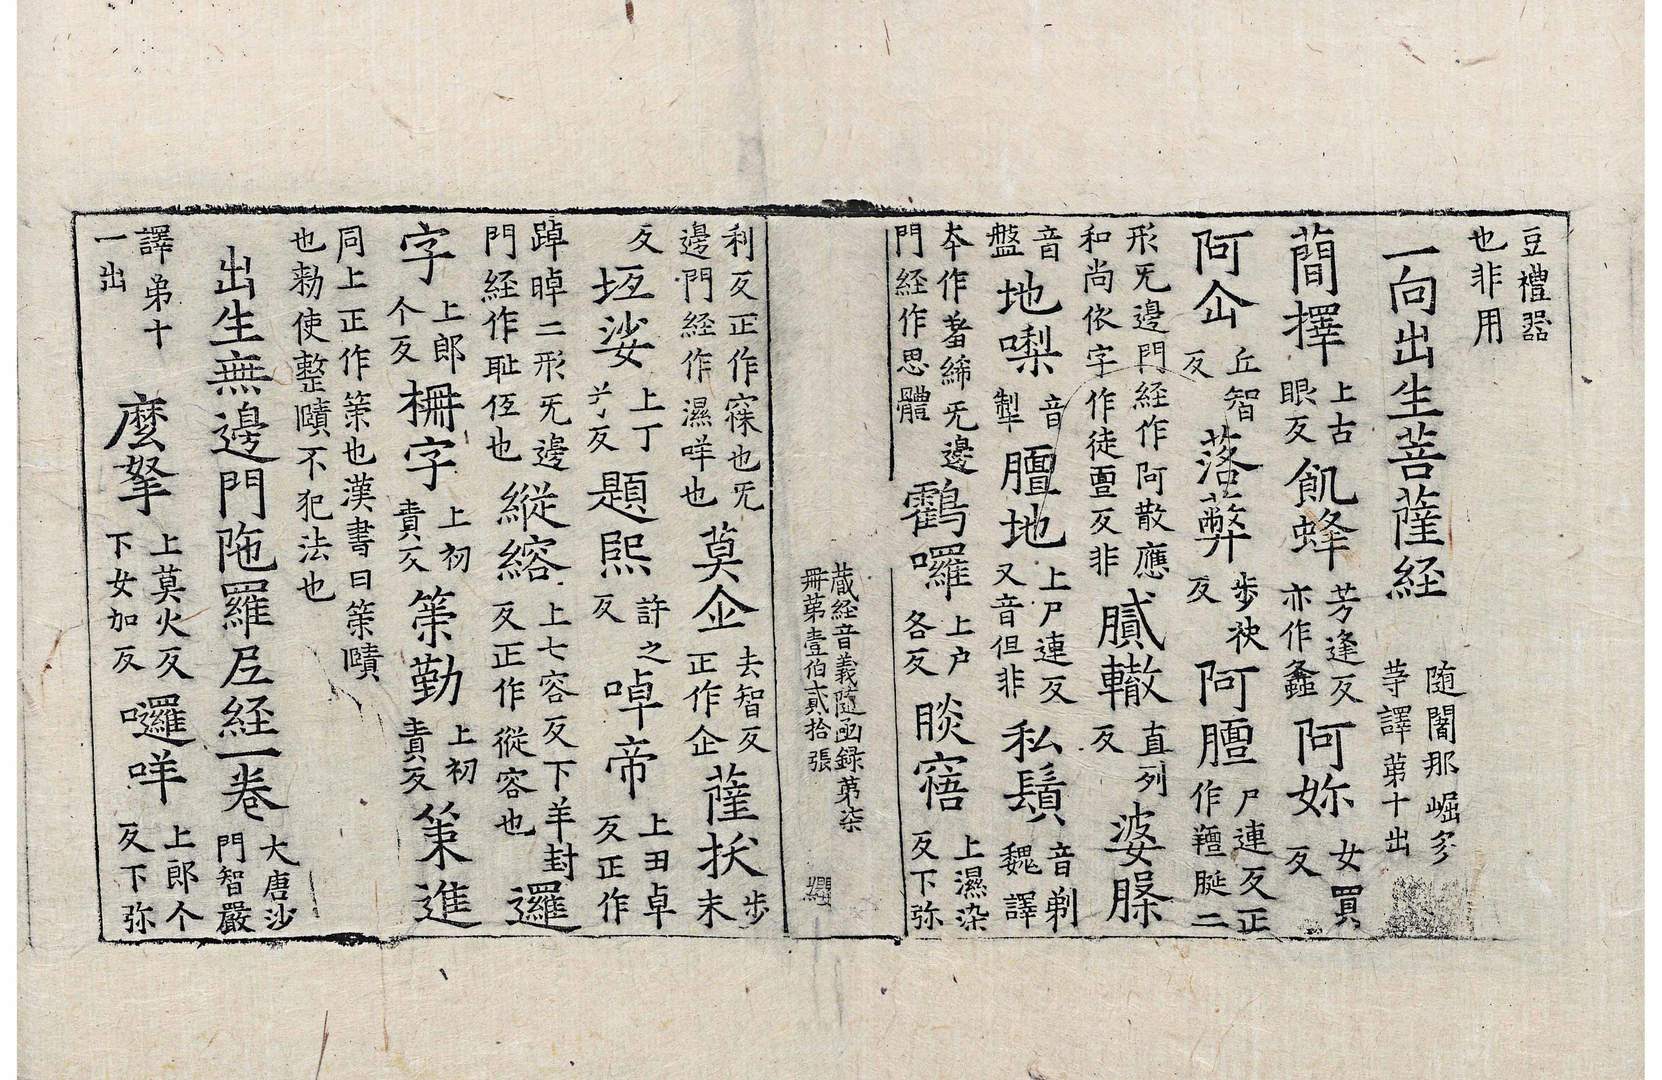 豆禮器
也非用
一向出生菩薩経 隨闍那崛多
等譯第十出
蕳擇 上古
眼反 飢蜂 芳逢反
亦作䗬 阿妳 女買
反
阿㐰 丘智
反 落弊 步袂
反 阿膻 尸連反正
作羶脠二
形旡邊門経作阿散應
和尚依字作徒亶反非 膩轍 直列
反 婆䐧
音
盤 地㗚 音
犁 膻地 上尸連反
又音但非 私鬚 音剃
魏譯
夲作蓄締旡邊
門経作思體 靍囉 上户
各反 睒寤 上濕染
反下弥
蔵経音義隨函録第柒
冊第壹伯貳拾張
利反正作寐也旡
邊門経作濕咩也 莫企 去智反
正作企 薩扷 步
末
反 坘娑 上丁
兮反 題熙 許之
反 啅帝 上田卓
反正作
踔晫二形旡邊
門経作耻侸也 縦縍 上七容反下羊封
反正作従容也 邏
字 上郎
个反 柵字 上初
責反 筞勤 上初
責反 筞進
同上正作策也漢書曰策賾
也勑使整賾不犯法也
出生無邊門陁羅尼経一卷 大唐沙
門智嚴
譯第十
一出 麼拏 上莫火反
下女加反 囉咩 上郎个
反下弥